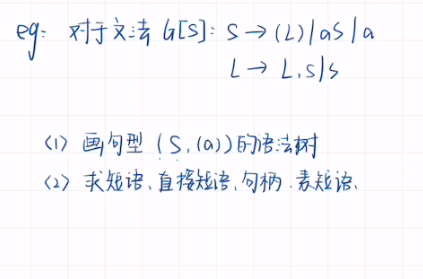 eg: 对于文法 G[S]: S → (L) | aS | a
L → L,S | S
(1) 画句型 (S,(a)) 的语法树
(2) 求短语、直接短语、句柄、素短语.